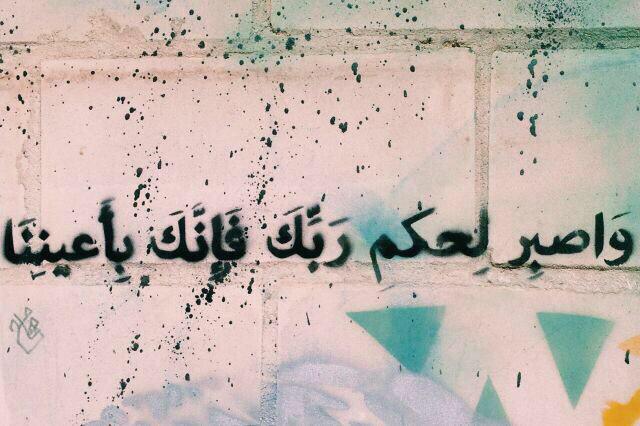 وَاصبِر لِحكم رَبِّكَ فَإِنَّكَ بِأَعيننَِا